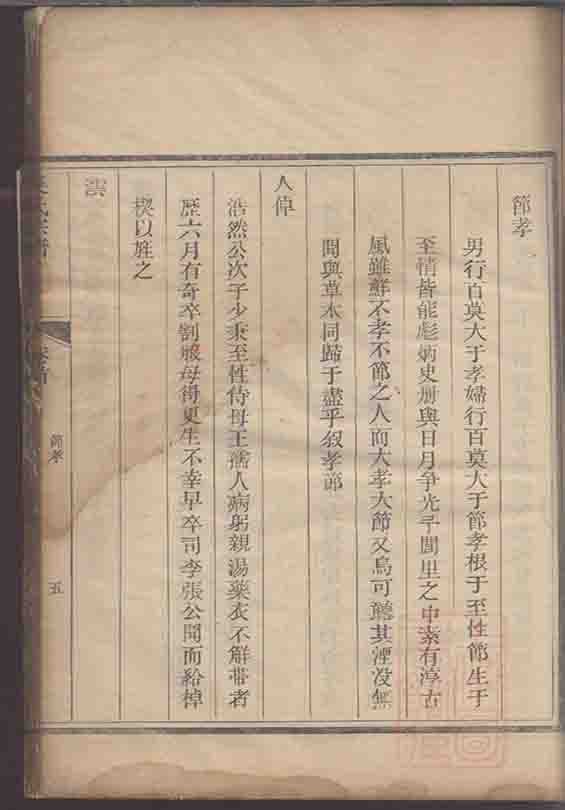 節孝
男行百莫大于孝婦行百莫大于節孝根于至性節生于
至情皆能彪炳史册與日月争光乎閭里之中素有淳古
風雖鮮不孝不節之人而大孝大節又烏可聽其湮没無
聞與草木同歸于盡乎叙孝節
人倬
浩然公次子少秉至性侍母王孺人病躬親湯藥衣不解帶者
歷六月有奇卒割股母得更生不幸早卒司李張公聞而給棹
楔以旌之
氏宗譜
卷首
節孝
五